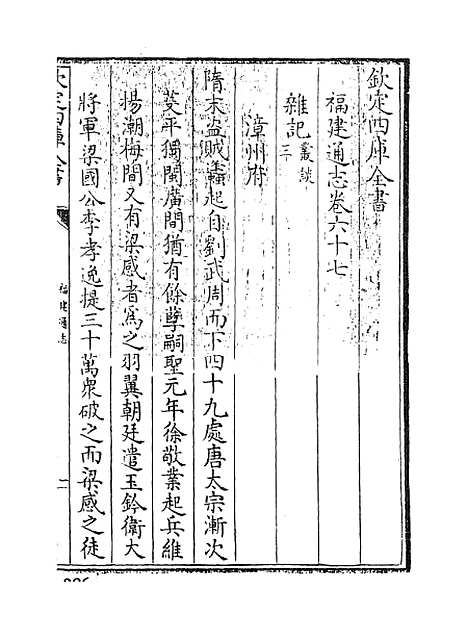 欽定四庫全書
福建通志卷六十七
雜記叢談三
漳州府
隋末盗賊蠭起自劉武周而下四十九處唐太宗漸次
芟平獨閩廣間猶有餘孽嗣聖元年徐敬業起兵維
揚潮梅間又有梁感者為之羽翼朝廷遣玉鈐衛大
將軍梁國公李孝逸提三十萬衆破之而梁感之徒
欽定四庫全書
福建通志